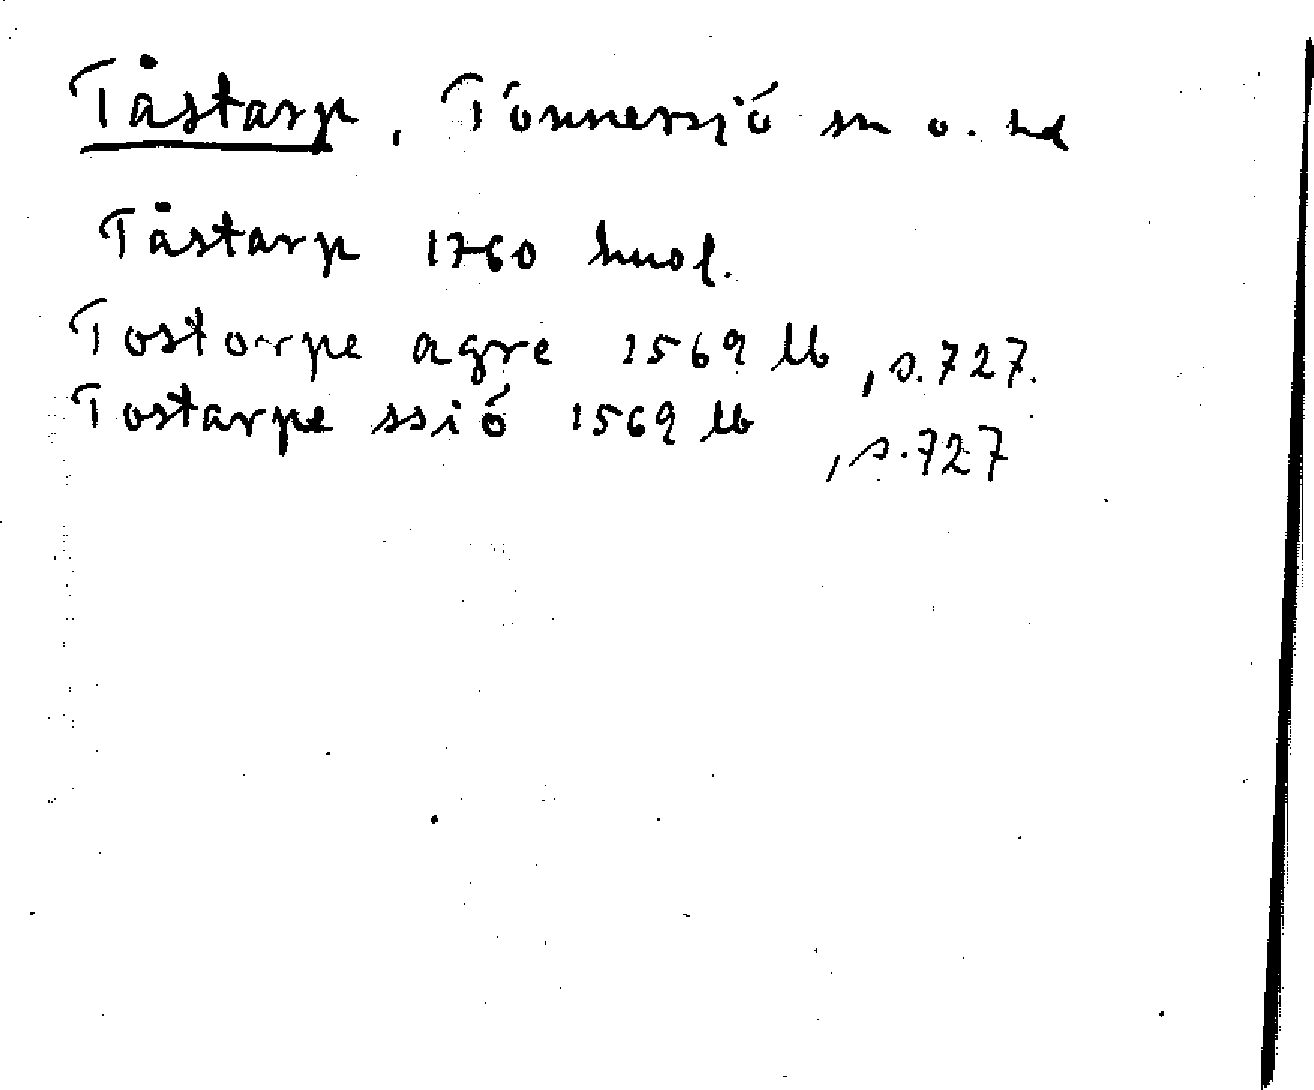 Tåstarp, Tönnersjö sn o. hd
Tåstarp 1760 huol.
Tostorpe agre 1569 lb, s.727.
Tostarpe ssió 1569 lb, s.727